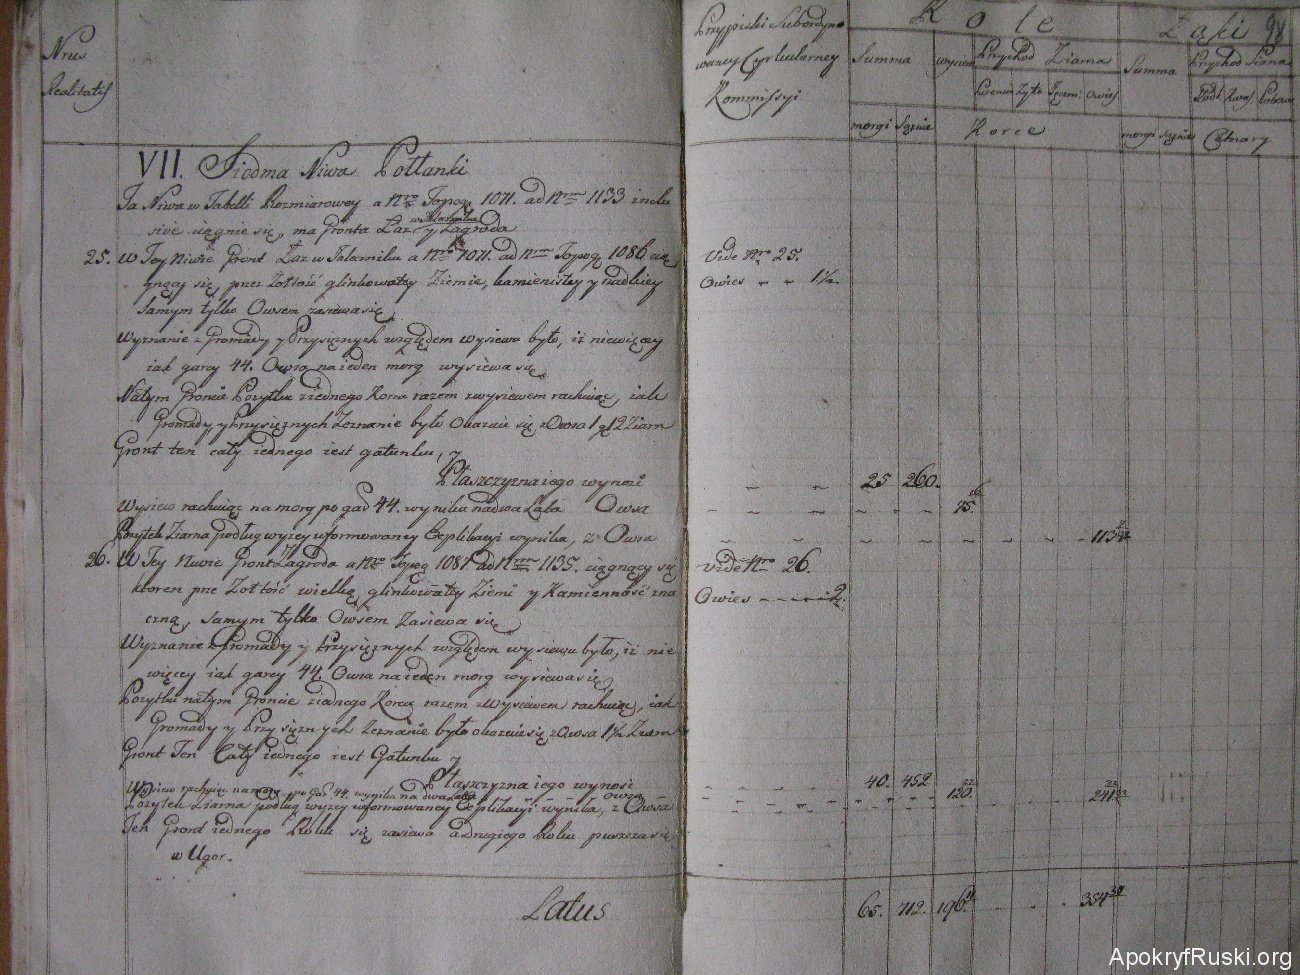 Nrus
Realitatis
VII. Siodma Niwa Połłanki
Ta Niwa w Tabelli Rozmiarowey a Nro Topog 1071. ad Nrm 1133 inclu
sive ciągnie się, ma Gronta Łaz w Jalerniku y Zagroda
25. W Tey Niwie Gront Łaz w Jalerniku a Nro 1071. ad Nrm Topog 1086 cią
gnący się, przez Zołtość glinkowatey Ziemie, kamienistey y rzadkiey
Samym tylko Owsem zasiewa się
Wyznanie z Gromady y Przysięznych względem wysiewu było, iz niewięcey
iak garcy 44. Owsa na ieden morg wysiewa się
Natym Groncie Pozytku ziednego Korca razem zwysiewem rachuiąc, iak
Gromady y Przysięznych Zeznanie było okazuie się z Owsa 1 ½ Ziarn
Gront ten cały iednego iest gatunku, y
Płaszczyzna iego wynosi
Wysiew rachuiąc na morg po gar 44. wynika na dwa Lata Owsa
Pozytek Ziarna podług wyzey uformowaney Explikacyi wynika, z Owsa
26. W Tey Niwie Gront Zagroda a Nro Topog 1087 ad Nrm 1135. ciągnący się
ktoren prze Zołtość wielką, glinkowatey Ziemi y Kamienność zna
czną, samym tylko Owsem Zasiewa się
Wyznanie z Gromady y Przysięznych względem wysiewu było, iz nie
więcey iak garcy 44. Owsa na ieden morg wysiewa się
Pozytku natym Groncie ziednego Korca razem zwysiewem rachuiąc, iak
Gromady y Przysięznych Zeznanie było okazuie się z Owsa 1 ½ Ziarn
Gront Ten Cały iednego iest Gatunku y
Płaszczyzna iego wynosi
Wysiew rachuiąc na morg po gar 44. wynika na dwa Lata Owsa
Pozytek Ziarna podług wyzey uformowaney Explikacyi wynika, z Owsa
Ten Gront iednego Roku się zasiewa a drugiego Roku puszcza się
w Ugor.
Latus
Przypiski Subordyno
waney Cyrkularney
Kommissyi
Role
Łąki
98
Summa
wysiew
Przychod Ziarna
Summa
Przychod Siana
Pszenica Zyto Jęczmi: Owies
Słod: Kwaś Potraw
morgi Sążnie
Korce
morgi sążnie
Cetnary
Vide Nro 25.
Owies - - 1 ½.
25 260.
75. 16
113
Vide Nro 26.
Owies - - - - 2.
40. 452
120. 22
241
65. 712. 196.
354 30
ApokryfRuski.org